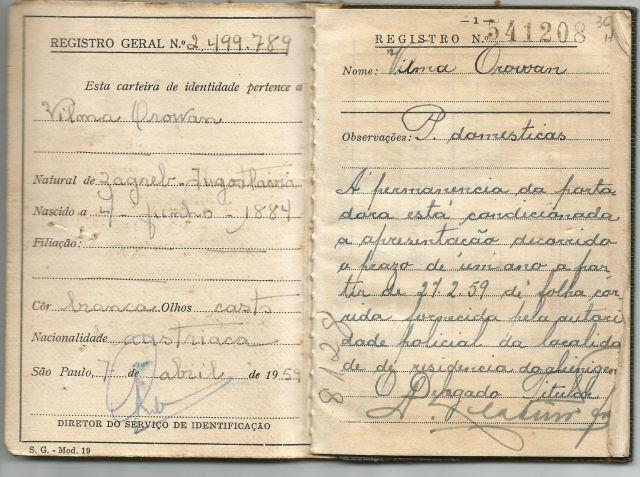 REGISTRO GERAL N.º 2.499.789
Esta carteira de identidade pertence a
Vilma Orowan
Natural de Zagreb - Jugoslavia
Nascido a 4 - junho - 1884
Filiação:
Côr branca. Olhos casts
Nacionalidade austriaca
São Paulo, 7 de abril de 1959
DIRETOR DO SERVIÇO DE IDENTIFICAÇÃO
S. G. - Mod. 19
— 1 —
REGISTRO N.º 541208
Nome: Vilma Orowan
Observações: P. domesticas
A permanencia da porta
dora está condicionada
a apresentação decorrido
o prazo de um ano a par
tir de 27.2.59 de folha cor
rida fornecida pela autori
dade policial da localida
de de residencia do alienigena
O Delegado Titular
8128